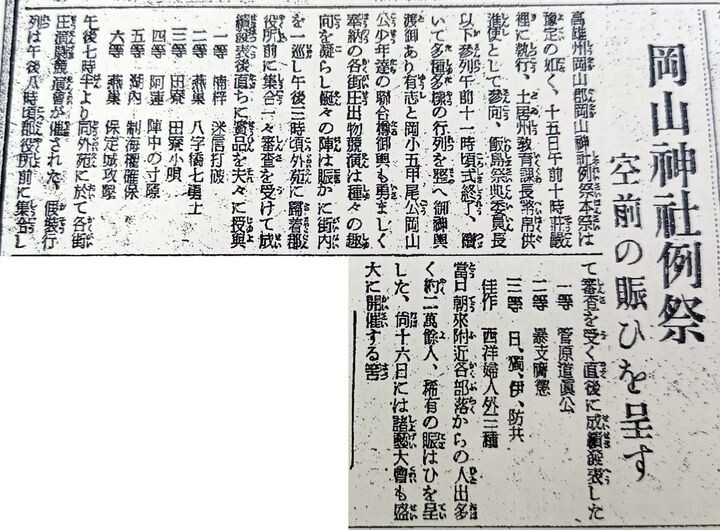 岡山神社例祭
空前の賑ひを呈す
高雄州岡山郡岡山神社例祭本祭は
豫定の如く、十五日午前十時莊嚴
裡に執行、土居州教育課長幣帛供
進使として參向、飯島祭典委員長
以下參列午前十一時頃式終了、續
いて多種多樣の行列を整へ御神輿
渡御あり有志と岡小五甲尾公岡山
公少年達の聯合樽御輿も勇ましく
奉納の各街庄出物競演は種々の趣
向を凝らし蜒々の陣は賑かに街内
を一巡し午後三時頃外苑に歸着郡
役所前に集合一々審査を受けて成
績發表後直ちに賞品を夫々に授與
一等 楠梓 迷信打破
二等 燕巢 八字橋七勇士
三等 田寮 田寮小唄
四等 阿蓮 陣中の寸原
五等 湖內 制海權確保
六等 燕巢 保定城攻擊
午後七時半より同外苑に於て各街
庄演藝競演會が催された、假裝行
列は午後八時頃郡役所前に集合し
て審査を受く直後に成績發表した
一等 菅原道眞公
二等 暴支膺懲
三等 日、獨、伊、防共
佳作 西洋婦人外三種
當日朝來附近各部落からの人出多
く約二萬餘人、稀有の賑はひを呈
した、尙十六日には諸藝大會も盛
大に開催する筈